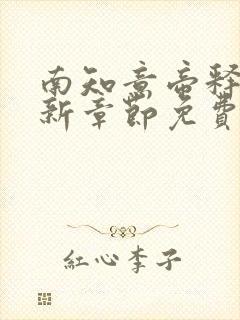 南知意帝释
新章節免費
紅心李子